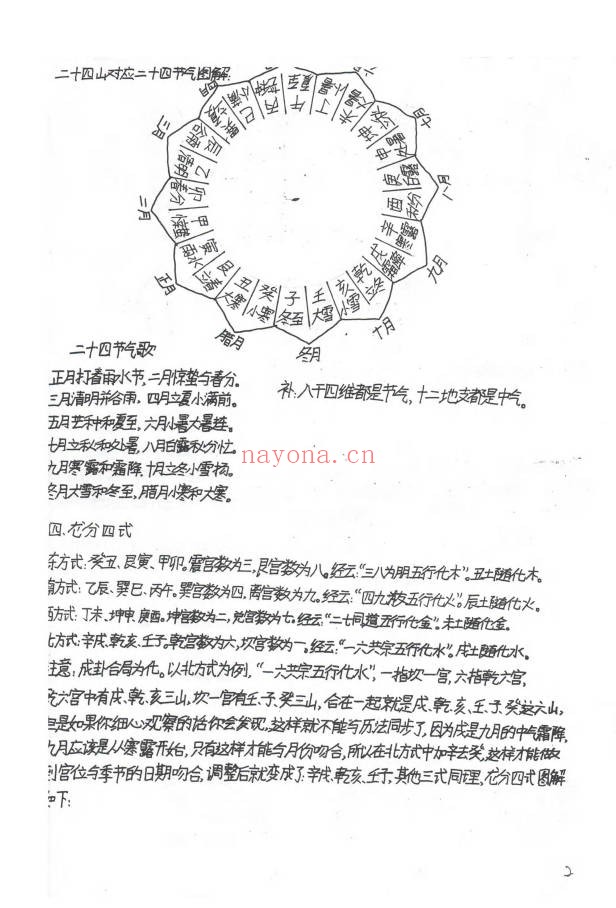 二十四山对应二十四节气图解:
巳 丙 午 丁
小满 芒种 夏至 小暑 大暑
辰 谷雨
乙 清明
卯 春分
甲 惊蛰
寅 雨水
艮 立春
丑 大寒
癸 小寒
子 冬至
壬 大雪
亥 小雪
乾 立冬
戌 霜降
辛 寒露
酉 秋分
庚 白露
申 处暑
坤 立秋
三月
二月
正月
腊月
冬月
十月
九月
八月
七月
二十四节气歌
正月打春雨水节,二月惊蛰与春分。
三月清明并谷雨,四月立夏小满前。
五月芒种和夏至,六月小暑大暑连。
七月立秋和处暑,八月白露秋分忙。
九月寒露和霜降,十月立冬小雪扬。
冬月大雪和冬至,腊月小寒和大寒。
补:八干四维都是节气,十二地支都是中气。
nayona.cn
四、龙分四式
东方式:癸丑、艮寅、甲卯。震宫数为三,艮宫数为八。经云:“三八为朋五行化木”。丑土随化木。
南方式:乙辰、巽巳、丙午。巽宫数为四,离宫数为九。经云:“四九为友五行化火”。辰土随化火。
西方式:丁未、坤申、庚酉。坤宫数为二,兑宫数为七。经云:“二七同道五行化金”。未土随化金。
北方式:辛戌、乾亥、壬子。乾宫数为六,坎宫数为一。经云:“一六共宗五行化水”。戌土随化水。
注意:成卦合局为化。以北方式为例,“一六共宗五行化水”,一指坎一宫,六指乾六宫,
乾六宫中有戌、乾、亥三山,坎一宫有壬、子、癸三山,合在一起就是戌、乾、亥、壬、子、癸这六山,
但是如果你细心观察的话你会发现,这样就不能与历法同步了,因为戌是九月的中气霜降,
九月应该是从寒露开始,只有这样才能与月份吻合,所以在北方式中加辛去癸,这样才能做
到宫位与季节的日期吻合,调整后就变成了:辛戌、乾亥、壬子,其他三式同理,龙分四式图解
如下:
2